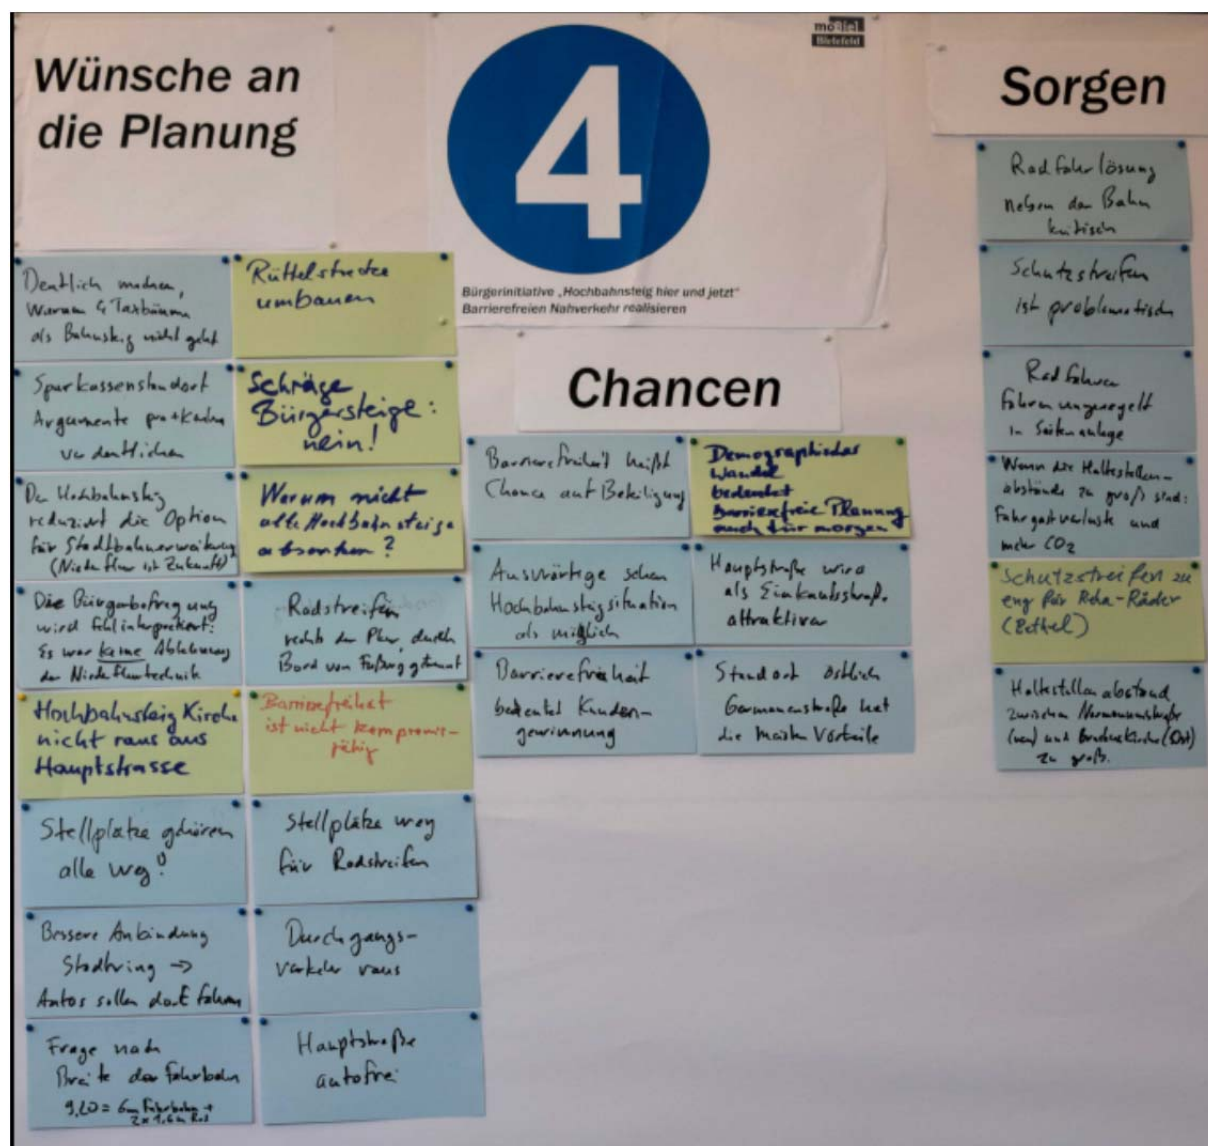 Wünsche an
die Planung
moBiel
Bielefeld
4
Bürgerinitiative „Hochbahnsteig hier und jetzt"
Barrierefreien Nahverkehr realisieren
Sorgen
Chancen
Deutlich machen,
Warum 4 
als Bahnsteig nicht geht
Sparkassenstandort
Argumente pro + Kontra
verdeutlichen
Der Hochbahnsteig
reduziert die Option
für Stadtbahnerweiterung
(Niederflur ist Zukunft)
Die Bürgerbefragung
wird fehlinterpretiert:
Es war keine Ablehnung
der Niederflurtechnik
Hochbahnsteig Kirche
nicht raus aus
Hauptstrasse
Stellplätze gehören
alle weg!
Bessere Anbindung
Stadtring →
Autos sollen dort fahren
Frage nach
Breite der Fahrbahn
9,20 = 6m Fahrbahn +
2 x 1,6m Rad
Rüttelstrecke
umbauen
Schräge
Bürgersteige:
nein!
Warum nicht
alle Hochbahnsteige
absenken?
Radstreifen
rechts der Pkw, durch
Bord von Fußweg getrennt
Barrierefreiheit
ist nicht kompromis-
fähig
Stellplätze weg
für Radstreifen
Durchgangs-
verkehr raus
Hauptstraße
autofrei
Barrierefreiheit heißt
Chance auf Beteiligung
Auswärtige sehen
Hochbahnsteigsituation
als möglich
Barrierefreiheit
bedeutet Kunden-
gewinnung
Demographischer
Wandel
bedeutet
Barrierefreie Planung
auch für morgen
Hauptstraße wird
als Einkaufsstraße
attraktiver
Standort östlich
Germanenstraße hat
die meisten Vorteile
Radfahrlösung
neben der Bahn
kritisch
Schutzstreifen
ist problematisch
Radfahrer
fahren ungeregelt
in Seitenanlage
Wenn die Haltestellen-
abstände zu groß sind:
Fahrgastverluste und
mehr CO2
Schutzstreifen zu
eng für Reha-Räder
(Bethel)
Haltestellenabstand
zwischen Normannenstraße
(neu) und Brackwede Kirche (Ost)
zu groß.